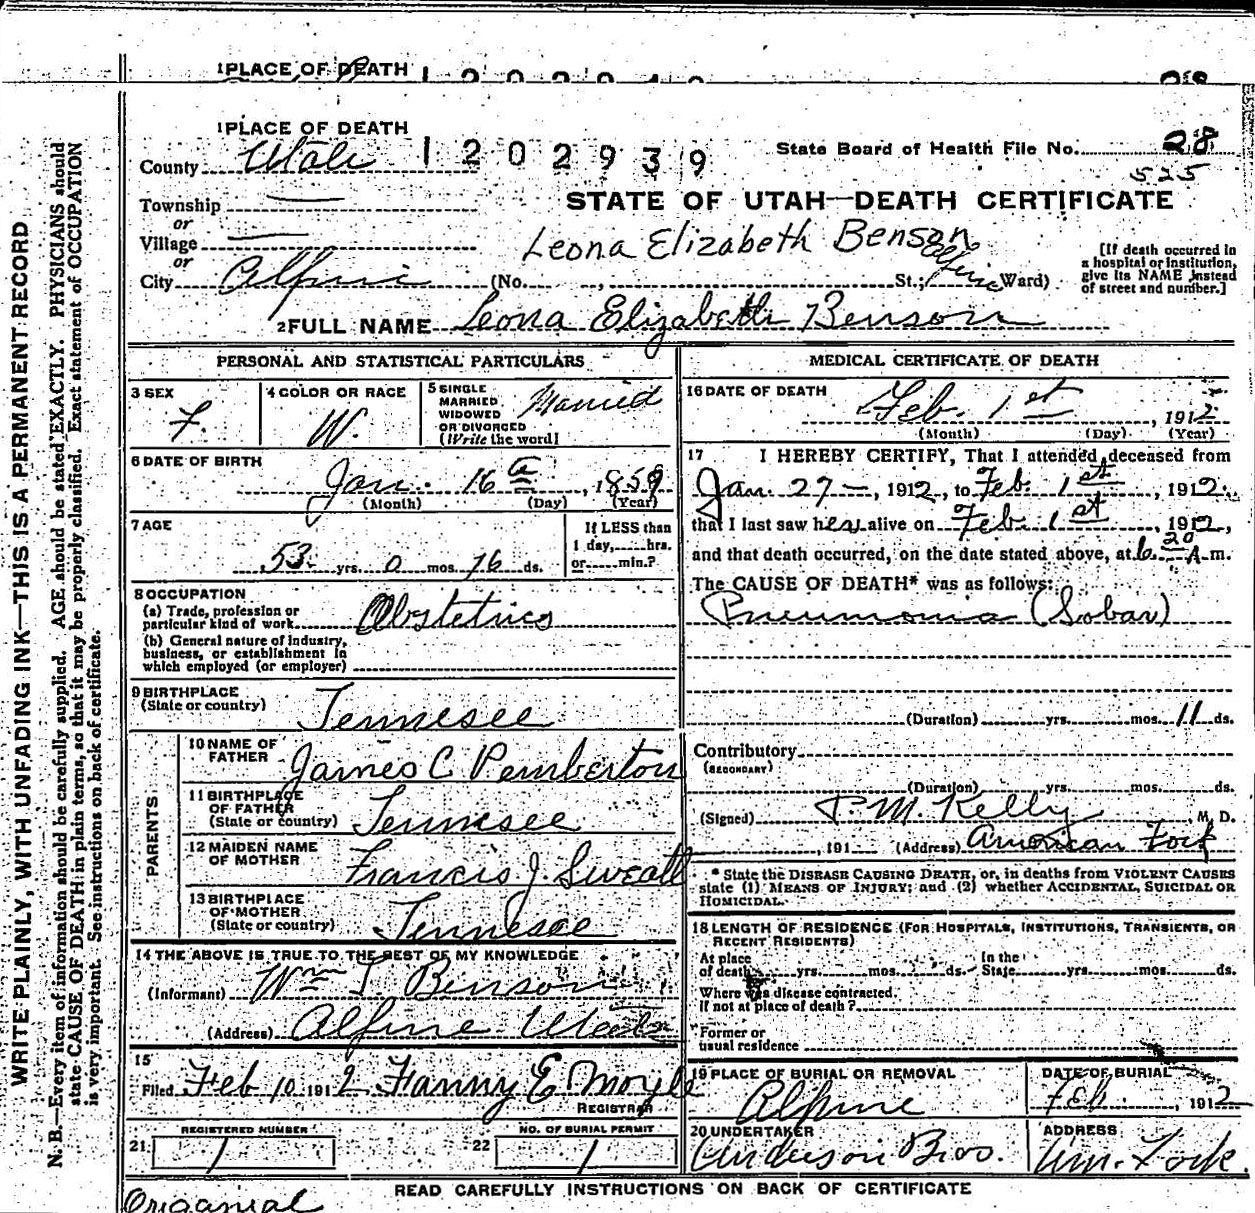 1 PLACE OF DEATH
1 PLACE OF DEATH
County Utah 1202939 State Board of Health File No. 28
525
Township —
or
STATE OF UTAH—DEATH CERTIFICATE
Village —
or
Leona Elizabeth Benson
City Alpine (No. , St.; Alpine Ward)
[If death occurred in
a hospital or institution,
give its NAME instead
of street and number.]
2 FULL NAME Leona Elizabeth Benson
PERSONAL AND STATISTICAL PARTICULARS
3 SEX
F.
4 COLOR OR RACE
W.
5 SINGLE
MARRIED
WIDOWED
OR DIVORCED
(Write the word)
Married
6 DATE OF BIRTH
Jan. 16 , 1859
(Month) (Day) (Year)
7 AGE
53 yrs. 0 mos. 16 ds.
If LESS than
1 day, hrs.
or min.?
8 OCCUPATION
(a) Trade, profession or
particular kind of work Obstetrics
(b) General nature of industry,
business, or establishment in
which employed (or employer)
9 BIRTHPLACE
(State or country) Tennesee
PARENTS
10 NAME OF
FATHER James C Pemberton
11 BIRTHPLACE
OF FATHER
(State or country) Tennesee
12 MAIDEN NAME
OF MOTHER Francis J Sweatt
13 BIRTHPLACE
OF MOTHER
(State or country) Tennesee
14 THE ABOVE IS TRUE TO THE BEST OF MY KNOWLEDGE
(Informant) Wm I Benson
(Address) Alpine Utah
15
Filed Feb 10 1912 Fanny E Moyle
REGISTRAR
REGISTERED NUMBER
21 1
NO. OF BURIAL PERMIT
22 1
MEDICAL CERTIFICATE OF DEATH
16 DATE OF DEATH
Feb. 1st , 1912
(Month) (Day) (Year)
17 I HEREBY CERTIFY, That I attended deceased from
Jan. 27 – , 1912, to Feb. 1st , 1912
that I last saw her alive on Feb. 1st , 1912,
and that death occurred, on the date stated above, at 6 20 A. m.
The CAUSE OF DEATH* was as follows:
Pneumonia (Lobar)
(Duration) yrs. mos. 11 ds.
Contributory
(SECONDARY)
(Duration) yrs. mos. ds.
(Signed) P. M. Kelly , M. D.
, 191 (Address) American Fork
* State the DISEASE CAUSING DEATH, or, in deaths from VIOLENT CAUSES
state (1) MEANS OF INJURY; and (2) whether ACCIDENTAL, SUICIDAL OR
HOMICIDAL.
18 LENGTH OF RESIDENCE (FOR HOSPITALS, INSTITUTIONS, TRANSIENTS, OR
RECENT RESIDENTS)
At place
of death yrs. mos. ds.
In the
State yrs. mos. ds.
Where was disease contracted,
If not at place of death?
Former or
usual residence
19 PLACE OF BURIAL OR REMOVAL
Alpine
DATE OF BURIAL
Feb. , 1912
20 UNDERTAKER
Anderson Bros.
ADDRESS
Am. Fork.
READ CAREFULLY INSTRUCTIONS ON BACK OF CERTIFICATE
WRITE PLAINLY, WITH UNFADING INK—THIS IS A PERMANENT RECORD
N. B.—Every item of information should be carefully supplied. AGE should be stated EXACTLY. PHYSICIANS should
state CAUSE OF DEATH in plain terms, so that it may be properly classified. Exact statement of OCCUPATION
is very important. See instructions on back of certificate.